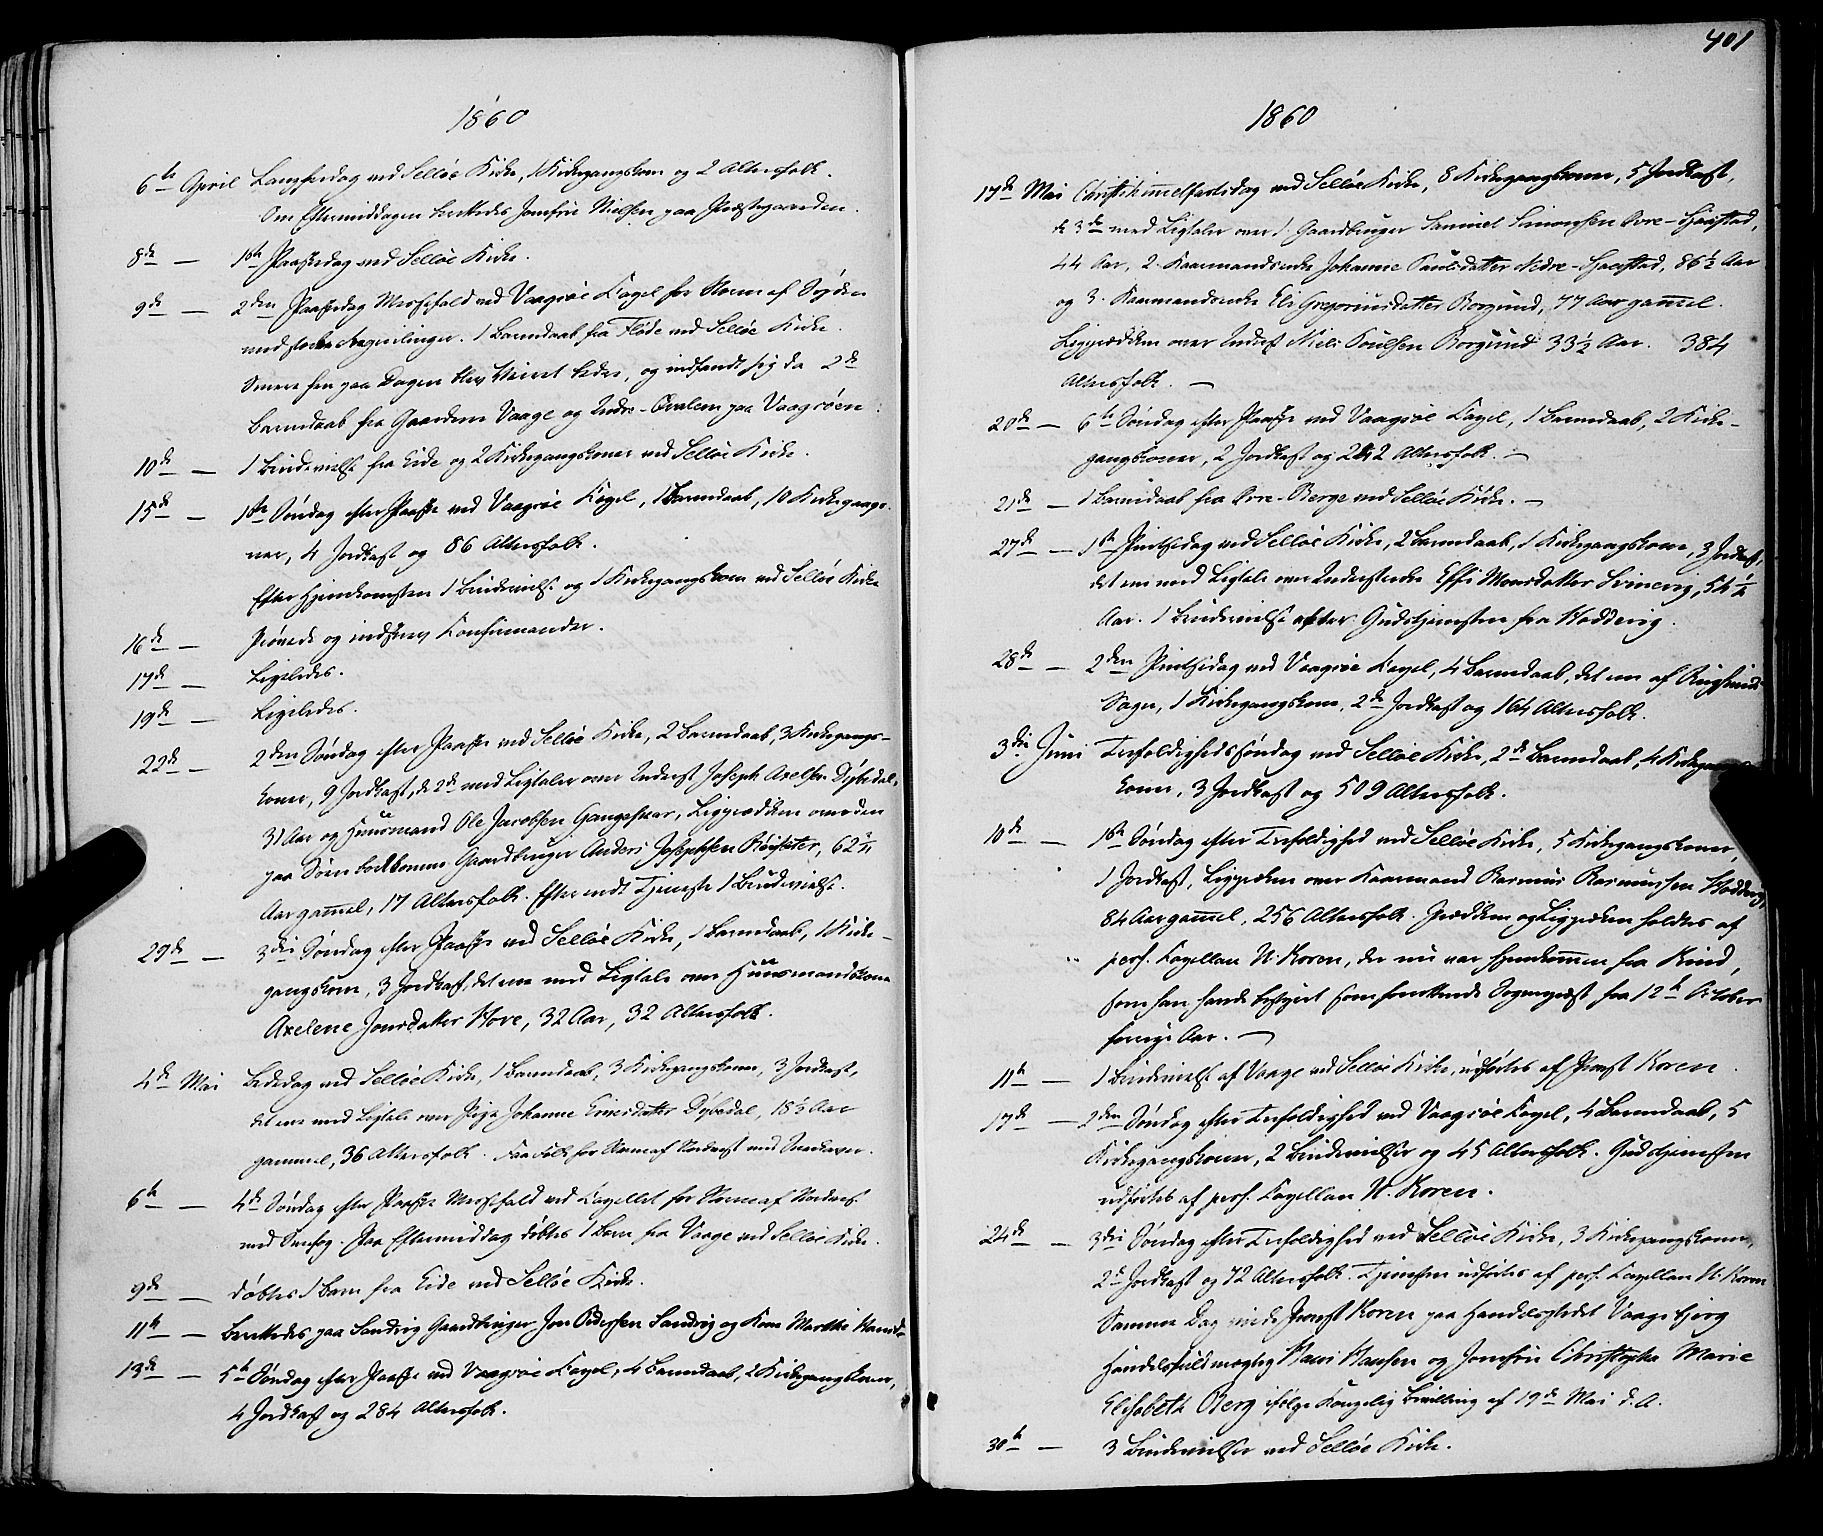 1860
6te April Langfredag ved Selløe Kirke, 1 Kirkegangskone og 2 Altersfolk.
Om Eftermiddagen berettedes Jomfrue Nielsen paa Præstegaarden.
8de — 1ste Paaskedag ved Selløe Kirke.
9de — 2den Paaskedag Messefald ved Vaagsøe Capel for Storm af Syden
med stærke Regniilinger. 1 Barnedaab fra Flöde ved Selløe Kirke.
Senere hen paa Dagen blev Veiret bedre, og indfandt sig da 2de
Barnedaab fra Gaardene Vaage og Indre-Qvalem paa Vaagsøen.
10de — 1 Brudevielse fra Eide og 2 Kirkegangskoner ved Selløe Kirke.
15de — 1ste Søndag efter Paaske ved Vaagsøe Capel, 1 Barnedaab, 10 Kirkegangs-
ner, 4 Jordkast og 86 Altersfolk.
Efter Hjemkomsten 1 Brudevielse og 1 Kirkegangskone ved Selløe Kirke
16de — Prøvede og indskrev Konfirmander.
17de — Ligeledes.
19de — Ligeledes.
22de — 2den Søndag efter Paaske ved Selløe Kirke, 2 Barnedaab, 3 Kirkegangs-
koner, 9 Jordkast, de 2de med Ligtaler over Inderst Joseph Axelsen Dybedal,
31 Aar og Huusmand Ole Jacobsen Gangeskar, Ligprædiken over den
paa Søen bortkomne Gaardbruger Anders Josephsen Røisæter, 62
Aar gammel, 17 Altersfolk. Efter endt Tjeneste 1 Brudevielse.
29de — 3die Søndag efter Paaske ved Selløe Kirke, 1 Barnedaab, 1 Kirke-
gangskone, 3 Jordkast, det ene med Ligtale over Huusmandskone
Axelene Jonsdatter Hove, 32 Aar, 32 Altersfolk.
4de Mai Bededag ved Selløe Kirke, 1 Barnedaab, 3 Kirkegangskoner, 3 Jordkast,
det ene med Ligtale over Pige Johanne Dybedal, 18½ Aar
gammel, 36 Altersfolk. Faa Folk for Storm af Nordvest med Sneekaver.
6te — 4de Søndag efter Paaske Messefald ved Capellet for Storm af Nordvest
med Sneefog. Paa Eftermiddag døbtes 1 Barn fra Vaage ved Selløe Kirke.
9de — døbtes 1 Barn fra Eide ved Selløe Kirke.
11te — Berettedes paa Sandvig Gaardbruger Jon Pedersen Sandvig og Kone Marthe
13de — 5te Søndag efter Paaske ved Vaagsøe Capel, 4 Barnedaab, 2 Kirkegangskoner,
4 Jordkast og 284 Altersfolk.
401
1860
17de Mai Christi Himmelfartsdag ved Selløe Kirke, 8 Kirkegangskoner, 5 Jordkast,
de 3de med Ligtaler over 1. Gaardbruger Samuel Simonsen Øvre-Hjelstad,
44 Aar, 2. Kaarmandsenke Johanne Paulsdatter Nedre-Hjelstad, 86½ Aar
og 3. Kaarmandsenke Eli Gregoriusdatter Borgund, 77 Aar gammel.
Ligprædiken over Inderst Niels Poulsen Borgund 33½ Aar. 384
Altersfolk. —
20de — 6te Søndag efter Paaske ved Vaagsøe Capel, 1 Barnedaab, 2 Kirke-
gangskoner, 2 Jordkast og 242 Altersfolk. —
21de — 1 Barnedaab fra Øvre-Berge ved Selløe Kirke. —
27de — 1ste Pintsedag ved Selløe Kirke, 2 Barnedaab, 1 Kirkegangskone, 3 Jordkast,
det ene med Ligtale over Inderstenke Effi Monsdatter Svinevig, 54½
Aar. 1 Brudevielse efter Gudstjenesten fra Hoddevig.
28de — 2den Pintsedag ved Vaagsøe Capel, 4 Barnedaab, det ene af Rugsunds
Sogn, 1 Kirkegangskone, 2de Jordkast og 164 Altersfolk.
3die Juni Trefoldighedssøndag ved Selløe Kirke, 2de Barnedaab, 4 Kirkegangs
koner, 3 Jordkast og 509 Altersfolk.
10de — 1ste Søndag efter Trefoldighed ved Selløe Kirke, 5 Kirkegangskoner,
1 Jordkast, Ligprediken over Kaarmand Rasmus Rasmussen Hoddevig,
84 Aar gammel, 256 Altersfolk. Prædiken og Ligpræken holdtes af
pers. Capellan N. Koren, der nu var hjemkommen fra Kind,
som han havde bestyret som fungerende Sogneprest fra 12te October
forrige Aar. —
11te — 1 Brudevielse af Vaage ved Selløe Kirke, udførtes af Provst Koren.
17de — 2den Søndag efter Trefoldighed ved Vaagsøe Capel, 4 Barnedaab, 5
Kirkegangskoner, 2 Brudevielser og 45 Altersfolk. Gudstjenesten
udførtes af pers. Capellan N. Koren.
24de — 3die Søndag efter Trefoldighed ved Selløe Kirke, 3 Kirkegangskoner,
2de Jordkast og 72 Altersfolk. Tjenesten udførtes af pers. Capellan N. Koren
Samme Dag viede Provst Koren paa Handelsstedet Vaagsbjerg
Handelsfuldmægtig Hans Hansen og Jomfrue Christopha Marie
Elisabeth Berg ifølge Kongelig Bevilling af 19de Mai d. A.
30te — 3 Brudevielser ved Selløe Kirke.